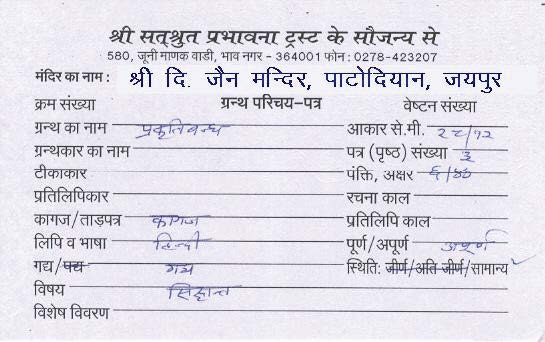 श्री सत्श्रुत प्रभावना ट्रस्ट के सौजन्य से
580, जूनी माणक वाडी, भाव नगर - 364001 फोन : 0278-423207
मंदिर का नाम : श्री दि. जैन मन्दिर, पाटोदियान, जयपुर
क्रम संख्या ग्रन्थ परिचय-पत्र वेष्टन संख्या
ग्रन्थ का नाम प्रकृतिबन्ध आकार से.मी. २८/१२
ग्रन्थकार का नाम पत्र (पृष्ठ) संख्या ३
टीकाकार पंक्ति, अक्षर ६/४०
प्रतिलिपिकार रचना काल
कागज/ताड़पत्र कागज प्रतिलिपि काल
लिपि व भाषा हिन्दी पूर्ण/अपूर्ण अपूर्ण
गद्य/पद्य गद्य स्थिति: जीर्ण/अति जीर्ण/सामान्य
विषय सिद्धान्त
विशेष विवरण